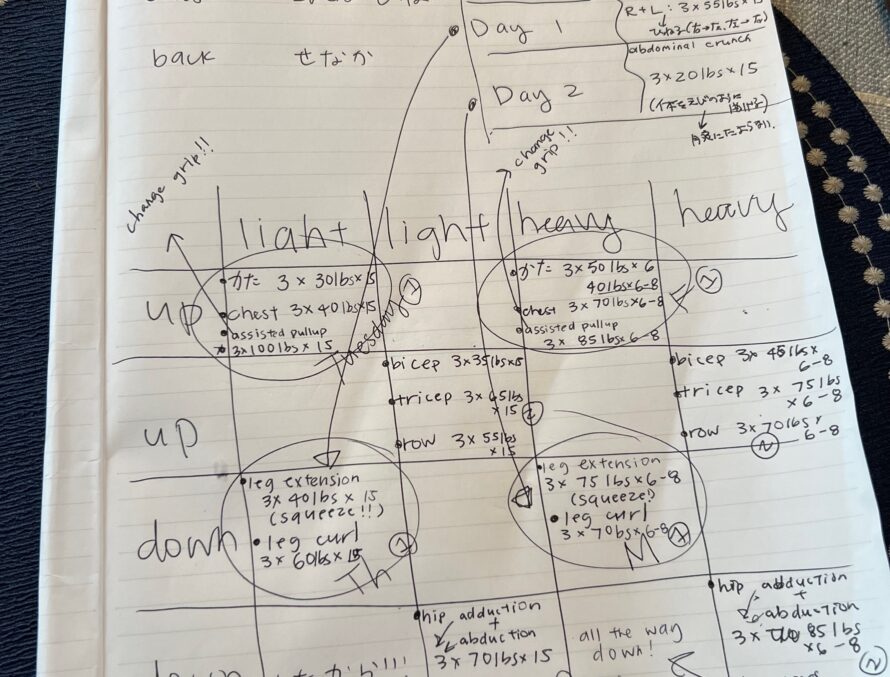 back せなか
Day 1
R+L: 3×55lbs×15
abdominal crunch
Day 2
3×20lbs×15
change grip!!
change grip!!
light light heavy heavy
up
かた 3 × 30lbs×15
chest 3×40lbs×15
assisted pullup
3×100lbs × 15
Tuesday
かた 3×50lbs×6
40lbs×6-8
chest 3×70lbs×6-8
assisted pullup
3× 85lbs×6-8
F
up
bicep 3×35lbs×15
tricep 3×65lbs
×15
row 3×55lbs
×15
bicep 3× 45lbs×
6-8
tricep 3× 75lbs
×6-8
row 3×70lbs×
6-8
down
leg extension
3×40lbs × 15
(squeeze!!)
leg curl
3×60lbs×15
Th
leg extension
3× 75lbs×6-8
(squeeze!)
leg curl
3×70lbs×6-8
M
hip adduction
+
abduction
3×70lbs×15
all the way
down!
hip adduction
+
abduction
3× 85lbs
×6-8